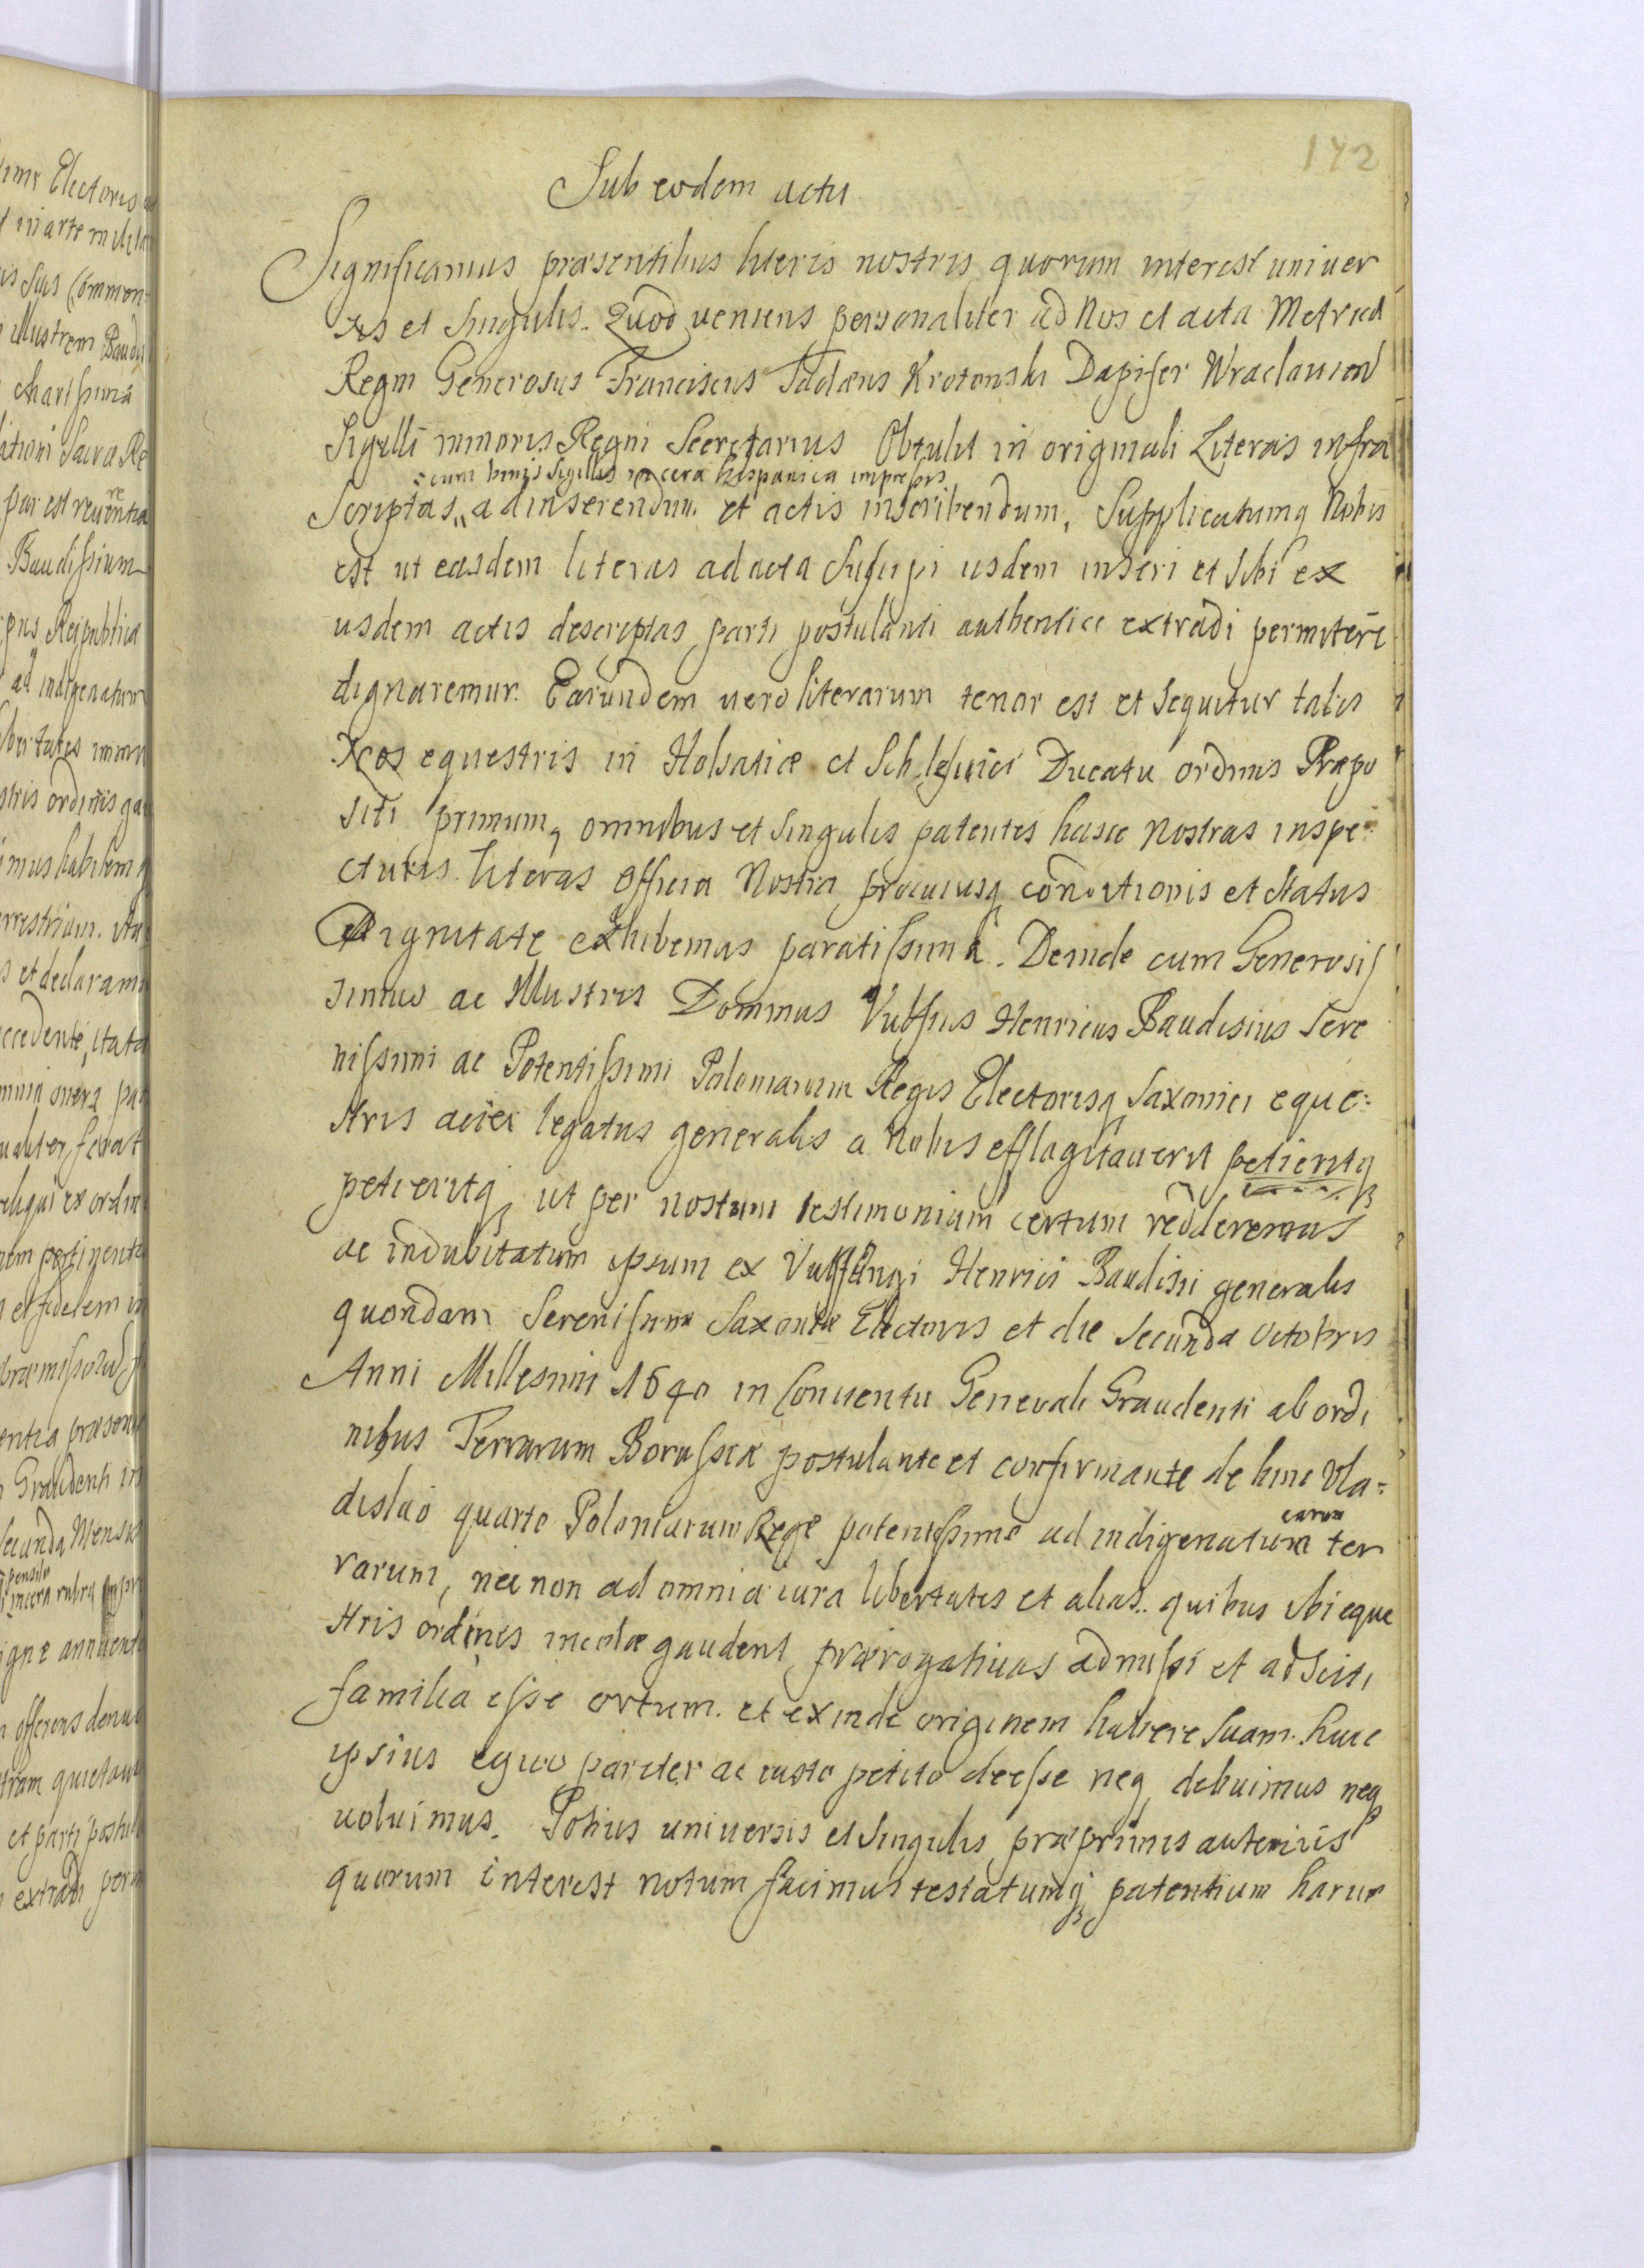 142
Sub eodem actu
Significamus præsentibus literis nostris quorum interest univer
sis et singulis. Quod veniens personaliter ad Nos et acta Metrices
Regni Generosus Franciscus Tadæus Krotonski Dapifer Wraclavien
Sigilli minoris Regni Secretarius Obtulit in originali Literas infra
cum binis Sigillis in cera hispanica impressis
Scriptas ad inserendum et actis inscribendum, Supplicatumq Nobis
est ut easdem literas ad acta suscipi iisdem inseri et sibi ex
iisdem actis descriptas parti postulanti authentice extradi permittere
dignaremur. Earundem vero literarum tenor est et Sequitur talis
Nos equestris in Holsatiæ et Schlesvici Ducatu ordinis Præpo
siti primum, omnibus et Singulis patentes hasce Nostras inspe:
cturis literas officia Nostra procuiusq conditionis et status
Dignitate exhibemus paratissima. Deinde cum Generosis
simus ac Illustris Dominus Henricus Baudisius Sere
nissimi ac Potentissimi Poloniarum Regis Electorisq Saxonici eque:
stris aciei legatus generalis a Nobis efflagitaverit petieritq
petieritq ut per nostrum testimonium certum redderemus
ac indubitatum ipsum ex Henrici Baudisii generalis
quondam Serenissimi Saxoniæ Electoris et die Secunda Octobris
Anni Millesimi 1640 in Conventu Generali Graudenti ab ordi
nibus Terrarum Borussiæ postulante et confirmante de hinc Vla=
dislao quarto Poloniarum Rege potentissimo ad indigenatum
earum
ter
rarum, nec non ad omnia iura libertates et alias quibus ibi eque
stris ordinis incolæ gaudent prærogativas admissi et adsciti
familia esse ortum et exinde originem habere suam. huic
ipsius equo pariter ac iusto petito deesse neq debuimus neq
voluimus. Potius universis et Singulis præprimis autem iis
quorum interest notum facimus testatumq patentium harum